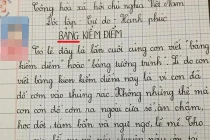 Cộng hòa xã hội chủ nghĩa Việt Nam
Độc lập - Tự do - Hạnh phúc
BẢNG KIỂM ĐIỂM
Có lẽ đây là lần cuối cùng con viết "bảng
kiểm điểm" hoặc "bảng tường trình". Lí do con
viết bảng kiểm điểm này là vì con đã
để com vào thùng rác. Không những thế mà
con còn để cơm ra ngoài cửa sổ, ăn chậm,
học dốt, tắm bẩn và ngủ ngố, lề mề. Cho